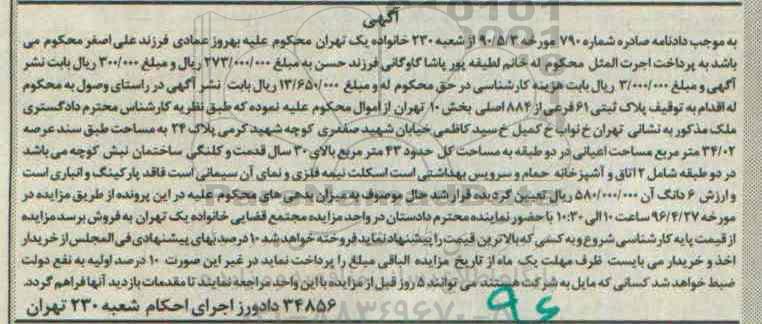 آگهی
به موجب دادنامه صادره شماره ۷۹۰ مورخه ۹۰/۵/۳ از شعبه ۲۳۰ خانواده یک تهران محکوم علیه بهروز عمادی فرزند علی اصغر محکوم می
باشد به پرداخت اجرت المثل محکوم له خانم لطیفه پور پاشا گاوگانی فرزند حسن به مبلغ ۲۷۳/۰۰۰/۰۰۰ ریال و مبلغ ۳۰۰/۰۰۰ ریال بابت نشر
آگهی و مبلغ ۳/۰۰۰/۰۰۰ ریال بابت هزینه کارشناسی در حق محکوم له و مبلغ ۱۳/۶۵۰/۰۰۰ ریال بابت نشر آگهی در راستای وصول به محکوم
له اقدام به توقیف پلاک ثبتی ۶۱ فرعی از ۸۸۴ اصلی بخش ۱۰ تهران از اموال محکوم علیه نموده که طبق نظریه کارشناس محترم دادگستری
ملک مذکور به نشانی تهران خ نواب خ کمیل خ سید کاظمی خیابان شهید صفدری کوچه شهید کرمی پلاک ۲۴ به مساحت طبق سند عرصه
۳۴/۰۲ متر مربع مساحت اعیانی در دو طبقه به مساحت کل حدود ۴۳ متر مربع بالای ۳۰ سال قدمت و کلنگی ساختمان نبش کوچه می باشد
در دو طبقه شامل ۲ اتاق و آشپزخانه حمام و سرویس بهداشتی است اسکلت نیمه فلزی و نمای آن سیمانی است فاقد پارکینگ و انباری است
و ارزش ۶ دانگ آن ۵۸۰/۰۰۰/۰۰۰ ریال تعیین گردیده قرار شد حال موصوف به میزان بدهی های محکوم علیه در این پرونده از طریق مزایده در
مورخه ۹۶/۴/۲۷ ساعت ۱۰ الی ۱۰:۳۰ با حضور نماینده محترم دادستان در واحد مزایده مجتمع قضایی خانواده یک تهران به فروش برسد مزایده
از قیمت پایه کارشناسی شروع و به کسی که بالاترین قیمت را پیشنهاد نماید فروخته خواهد شد ۱۰ درصد بهای پیشنهادی فی المجلس از خریدار
اخذ و خریدار می بایست ظرف مهلت یک ماه از تاریخ مزایده الباقی مبلغ را پرداخت نماید در غیر این صورت ۱۰ درصد اولیه به نفع دولت
ضبط خواهد شد کسانی که مایل به شرکت هستند می توانند ۵ روز قبل از مزایده با این واحد مراجعه نمایند تا مقدمات بازدید آنها فراهم گردد.
۳۴۸۵۶ دادورز اجرای احکام شعبه ۲۳۰ تهران